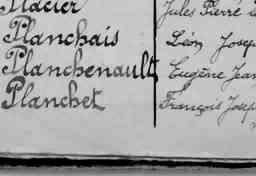 Placier Jules Pierre
Planchais Léon Josep
Planchenault Eugène Jean
Planchet François Josep